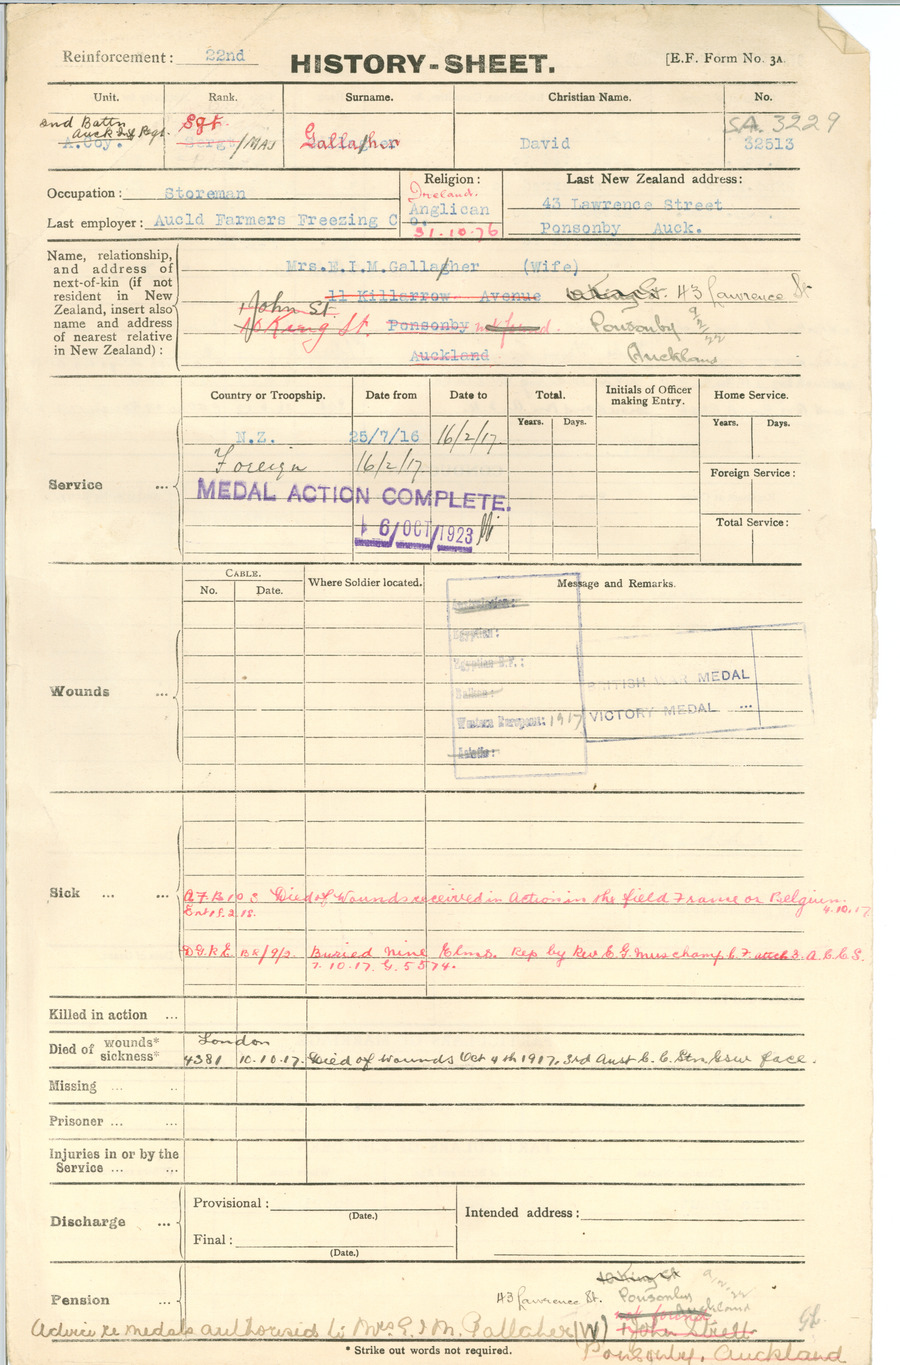 Reinforcement: 22nd
HISTORY-SHEET.
[E.F. Form No. 3A.
Unit. Rank. Surname. Christian Name. No.
2nd Battn Auck Inf Regt. Sgt. SA. 3229
A.Coy. Sergt/MAJ Gallagher David 32513
Occupation: Storeman
Last employer: Aucld Farmers Freezing Co.
Religion:
Ireland.
Anglican
31.10.76
Last New Zealand address:
43 Lawrence Street
Ponsonby Auck.
Name, relationship,
and address of
next-of-kin (if not
resident in New
Zealand, insert also
name and address
of nearest relative
in New Zealand):
Mrs.E.I.M.Gallagher (Wife)
11 Killarrow Avenue 43 Lawrence St
John St.
10 King St. Ponsonby not found. Ponsonby 9/2/22
Auckland Auckland
Country or Troopship. Date from Date to Total. Initials of Officer making Entry. Home Service.
Years. Days. Years. Days.
Service ...
N.Z. 25/7/16 16/2/17.
Foreign 16/2/17
Foreign Service:
MEDAL ACTION COMPLETE.
16/OCT/1923
Total Service:
Cable.
No. Date. Where Soldier located. Message and Remarks.
Wounds ...
Egyptian:
Egyptian E.F.:
Balkan:
Western European: 1917
Asiatic:
BRITISH WAR MEDAL
VICTORY MEDAL ...
Sick ... ...
A.F.B 103 Died of Wounds received in Action in the field France or Belgium.
4.10.17
D.G.R.E. Buried Nine Elms. Rep by Rev E.G. Muschamp C.F. attch 3.A.C.C.S.
7.10.17. G.5574.
Killed in action ...
Died of wounds* sickness*
London
4381 10.10.17. Died of wounds Oct 4th 1917. 3rd Aust C.C. Stn. Gsw face.
Missing ... ..
Prisoner ... ...
Injuries in or by the
Service ... ...
Discharge ...
Provisional:
(Date.)
Final:
(Date.)
Intended address:
Pension ...
10 King St
43 Lawrence St. Ponsonby
not found Auckland
Advice re medals authorised to Mrs E I M. Gallagher (W) John Street
Ponsonby, Auckland
* Strike out words not required.